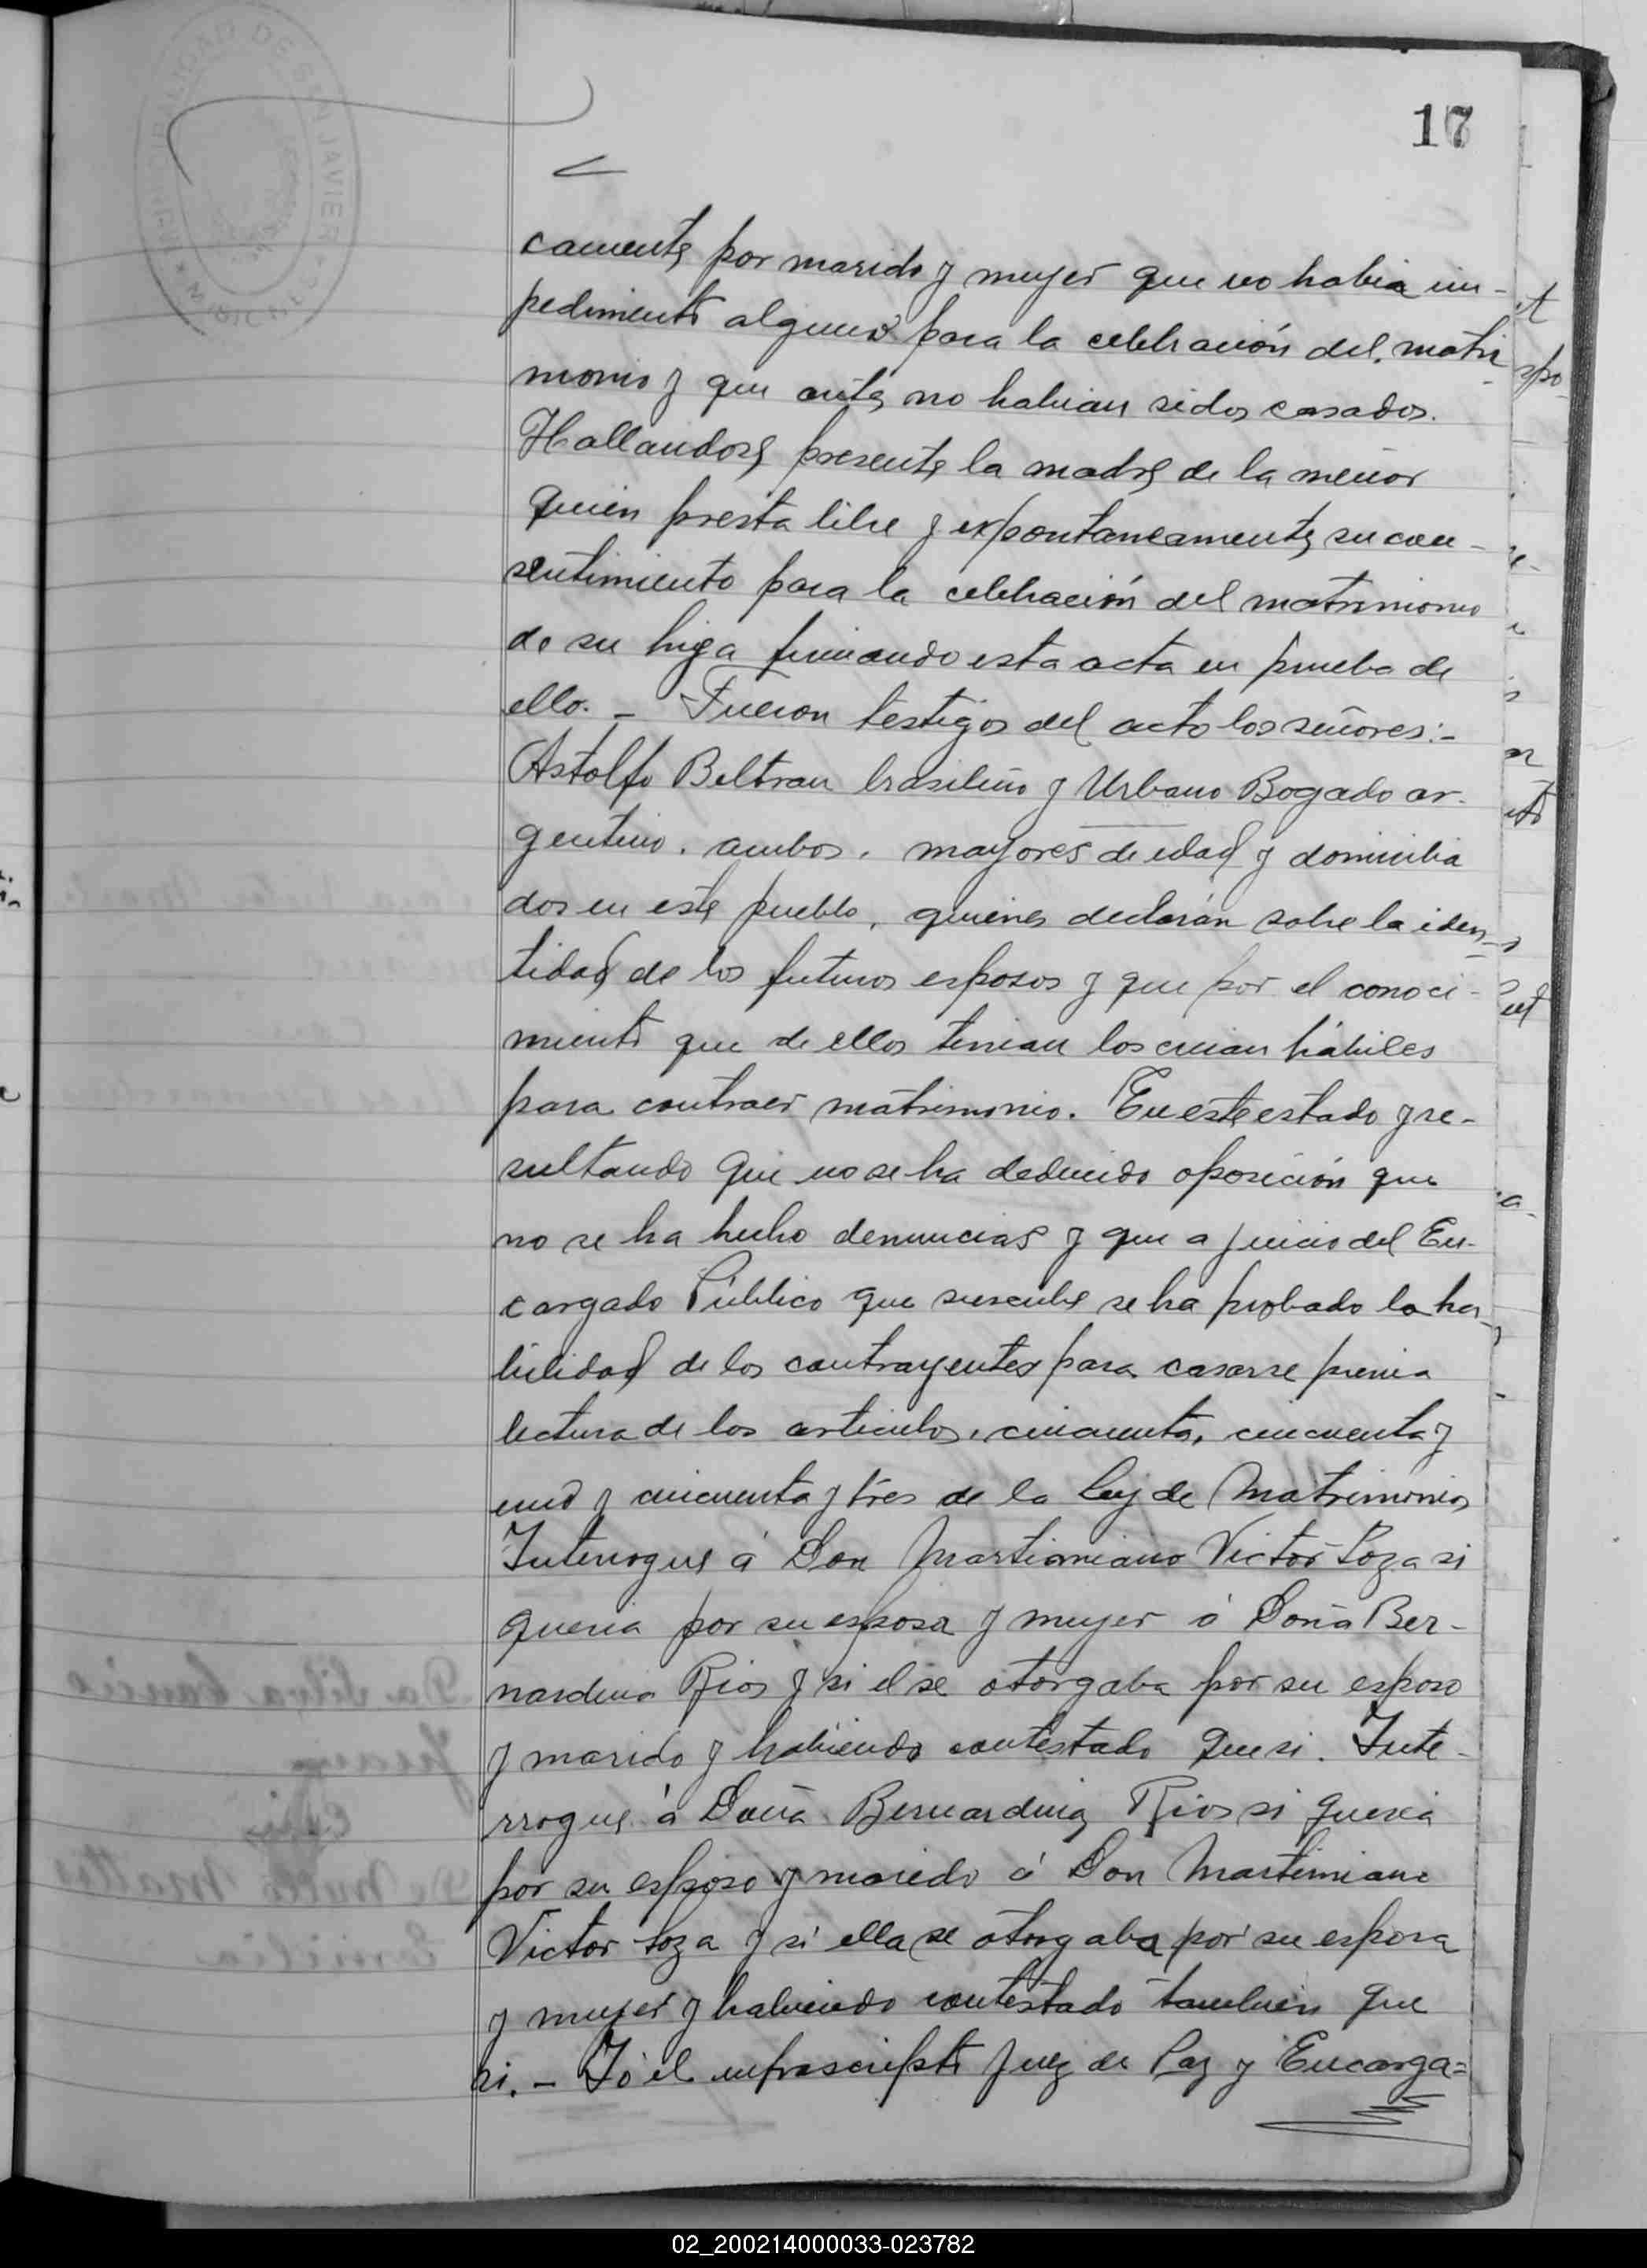 17
camente por marido y mujer que no habia im-
pedimento alguno para la celebración del matri
monio y que antes no habian sidos casados.
Hallandose presente la madre de la menor
quien presta libre y expontaneamente su con-
sentimiento para la celebración del matrimonio
de su higa firmando esta acta en prueba de
ello. - Fueron testigos del acto los señores:-
Astolfo Beltran brasileño y Urbano Bogado ar-
gentino, ambos, mayores de edad y domicilia
dos en este pueblo, quienes declarán sobre la iden-
tidad de los futuros esposos y que por el conoci-
miento que de ellos tenian los creian hábiles
para contraer matrimonio. En este estado y re-
sultando que no se ha deducido oposición que
no se ha hecho denuncias y que a juicio del En-
cargado Público que suscribe se ha probado la ha-
bilidad de los contrayentes para casarse previa
lectura de los articulos, cincuenta, cincuenta y
uno y cincuenta y tres de la Ley de Matrimonio
Interrogue á Don Martimiano Victor Loza si
queria por su esposa y mujer á Doña Ber-
nardina Rios y si el se otorgaba por su esposo
y marido y habiendo contestado que si. Inte-
rrogue á Doña Bernardina Rios si queria
por su esposo y marido á Don Martimiano
Victor Loza y si ella se otorgaba por su esposa
y mujer y habiendo contestado tambien que
si. - Yo el infrascripto Juez de Paz y Encarga=
02_200214000033-023782